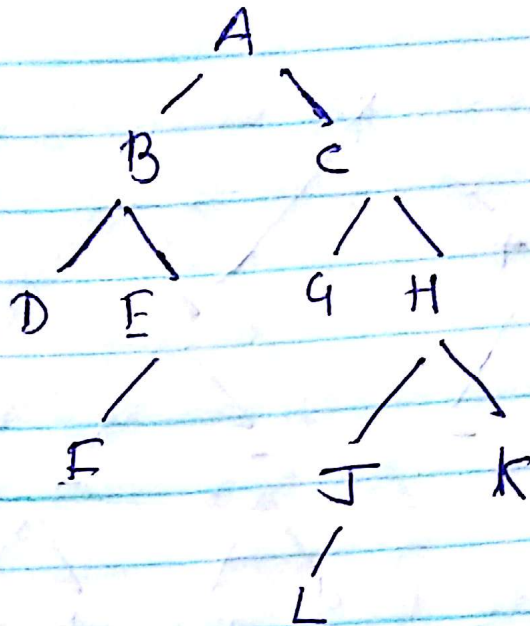 A
B C
D E G H
F J K
L